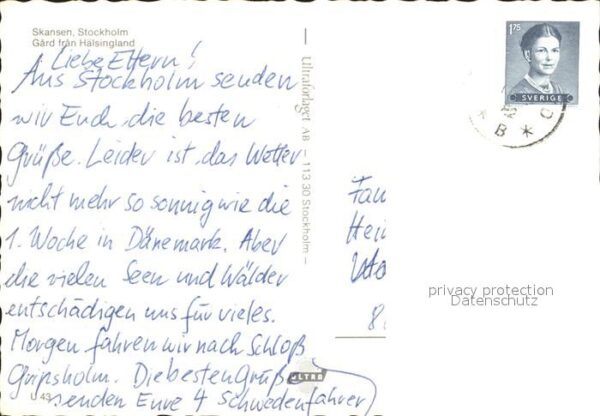 Skansen, Stockholm
Gård från Hälsingland
Liebe Eltern!
Aus Stockholm senden
wir Euch die besten
Grüße. Leider ist das Wetter
nicht mehr so sonnig wie die
1. Woche in Dänemark. Aber
die vielen Seen und Wälder
entschädigen uns für vieles.
Morgen fahren wir nach Schloß
Gripsholm. Die besten Grüße
senden Eure 4 Schwedenfahrer
U 43
Ultraförlaget AB – 113 30 Stockholm –
ULTRA
1.75
SVERIGE
* B *
Fam
Hei
8
privacy protection
Datenschutz